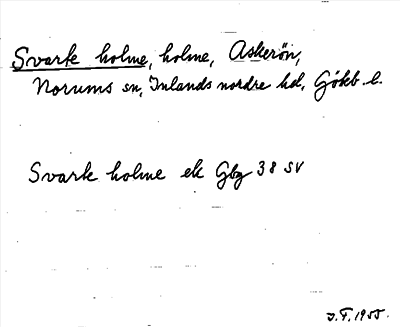 Svark holme, holme, Askerön,
Norums sn, Inlands nordre hd, Gökb. l.
Svark holme ek Gbg 38 SV
J.F. 1955.